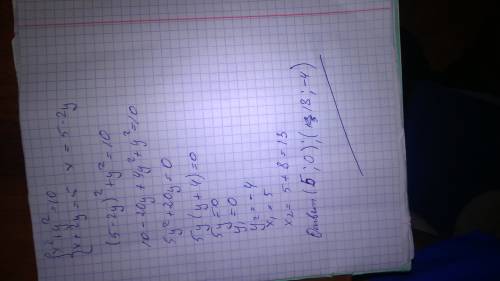 {x²+y²=10
{x+2y=5   x=5-2y
(5-2y)²+y²=10
10-20y+4y²+y²=10
5y²+20y=0
5y(y+4)=0
5y=0
y₁=0
y₂=-4
x₁=5
x₂= 5+8=13
Ответ (5;0);(13;-4)